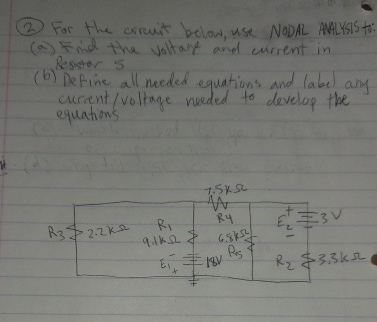 ② For the circuit below, use NODAL ANALYSIS to:
(a) Find the voltage and current in
Resistor 5
(b) Define all needed equations and label any
current/voltage needed to develop the
equations
7.5kΩ
R4
R3 2.2kΩ
R1
9.1kΩ
6.8kΩ
R5
E1 - + 18V
+ E2 - 3V
R2 3.3kΩ